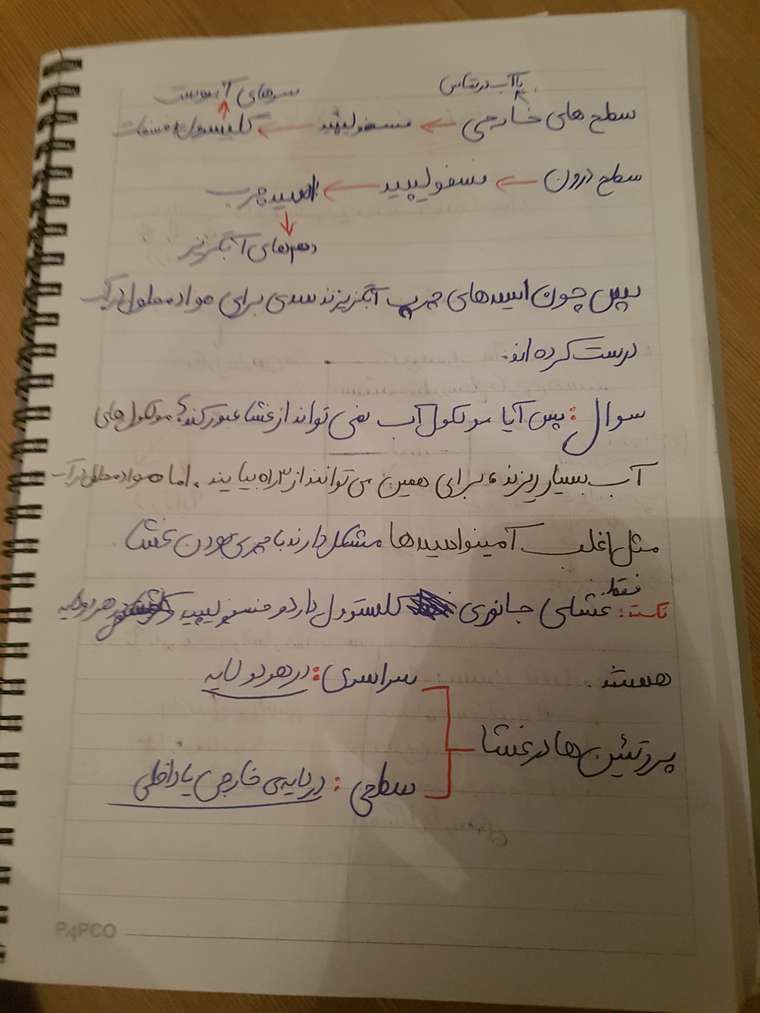 با آب در تماس سرهای آبدوست
سطح های خارجی ← فسفولیپید ← گلیسرول + فسفات
سطح درون ← فسفولیپید ← اسید چرب
دم های آبگریز
پس چون اسیدهای چرب آبگریزند سدی برای مواد محلول در آب
درست کرده اند.
سوال: پس آیا مولکول آب نمی تواند از غشا عبور کند؟ مولکول های
آب بسیار ریزند، برای همین می توانند از ۳ راه بیایند. اما مواد محلول در آب
مثل اغلب آمینواسیدها مشکل دارند با چربی بودن غشا.
نکته: غشای جانوری فقط کلسترول دارد و فسفولیپید در هر دو لایه
هستند.
سراسری: در هر دو لایه
پروتئین ها در غشا
سطحی: در لایه ی خارجی یا داخلی
PAPCO